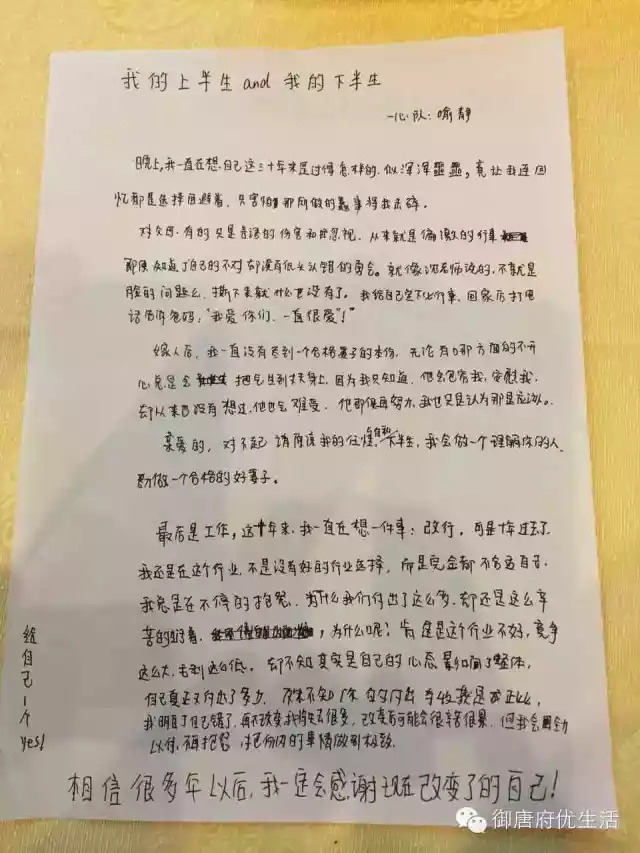 我的上半生 and 我的下半生
一心队:喻静
晚上,我一直在想自己这三十年来是过得怎样的,似浑浑噩噩,竟让我连回
忆都是选择回避着,只害怕那所做的蠢事将我击碎。
对父母,有的只是言语的伤害和忽视,从来就是偏激的行事
即使知道了自己的不对却没有低头认错的勇气。就像沈老师说的,不就是
脸的问题么,撕下来就什么也没有了。我给自己定下此行事,回家后打电
话告诉爸妈:“我爱你们,一直很爱”!
嫁人后,我一直没有尽到一个合格妻子的本份,无论有哪方面的不开
心总是会把气生到丈夫身上,因为我只知道,他会包容我,安慰我,
却从来也没有想过,他也会难受,他那使再努力,我也只是认为那是应该。
亲爱的,对不起 请原谅我的任性,下半生,我会做一个理解你的人,
做一个合格的好妻子。
最后是工作,这十年来,我一直在想一件事:改行,可是十年过去了
我还是在这个行业,不是没有好的行业选择,而是完全都不合适自己,
我总是在不停的抱怨,为什么我们付出了这么多,却还是这么辛
苦的,为什么呢?肯定是这个行业不好,竞争
这么大,毛利这么低。却不知其实是自己的心态影响了整体,
自己真正又付出了多少,
我明白了自己错了,再不改变我将失去很多,改变后可能会很辛苦很累,但我会用全
以付,不再抱怨,把份内的事情做到极致。
相信很多年以后,我一定会感谢现在改变了的自己!
给自己一个yes!
御唐府优生活